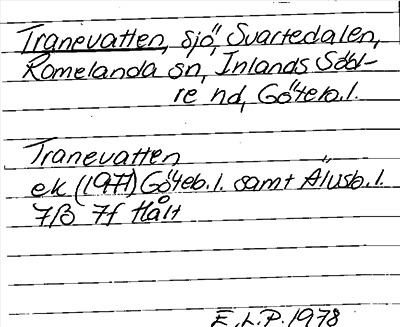 Tranevatten, sjö, Svartedalen,
Romelanda sn, Inlands Söd-
re hd, Göteb.l.
Tranevatten
ek (1971) Göteb.l. samt Älvsb.l.
7B 7f Hålt
E.L.P. 1978